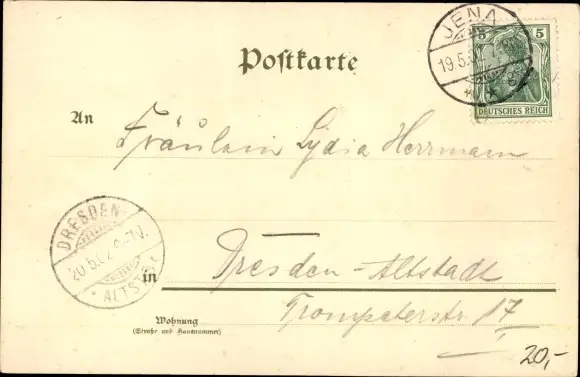 Postkarte
JENA
19.5.02
5 5
DEUTSCHES REICH
An
Fräulein Lydia Herrmann
DRESDEN
20.5.02
ALTST.
in
Dresden-Altstadt
Trompeterstr. 17
Wohnung
(Straße und Hausnummer)
20,-